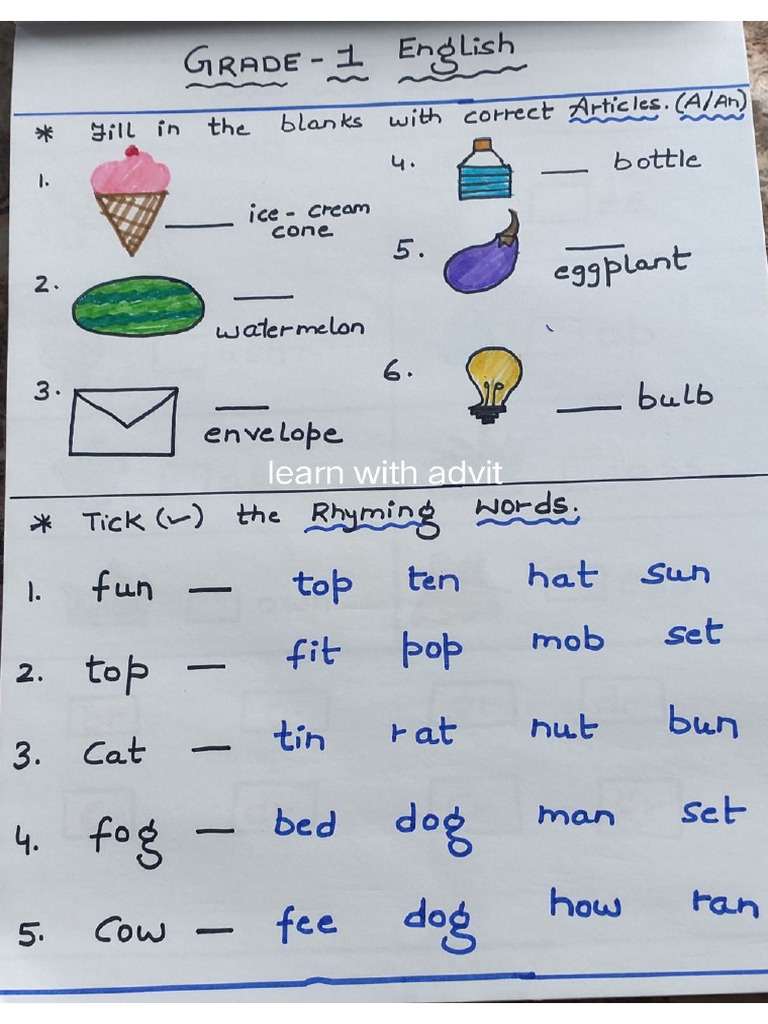 GRADE - 1 English
* Fill in the blanks with correct Articles. (A/An)
1. ____ ice-cream
cone
2. ____
watermelon
3. ____
envelope
4. ____ bottle
5. ____
eggplant
6. ____ bulb
learn with advit
* Tick (✓) the Rhyming words.
1. fun — top ten hat sun
2. top — fit pop mob set
3. Cat — tin rat nut bun
4. fog — bed dog man set
5. Cow — fee dog how ran